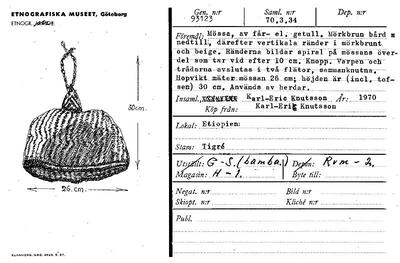 ETNOGRAFISKA MUSEET, Göteborg
ETNOGR.
30cm.
26. cm.
Gen. n:r
93123
Saml. n:r
70.3.34
Dep. n:r
Föremål: Mössa, av får- el. getull. Mörkbrun bård
nedtill, därefter vertikala ränder i mörkbrunt
och beige. Ränderna bildar spiral på mössans över-
del som tar vid efter 10 cm. Knopp. Varpen och
trådarna avslutas i två flätor, sammanknutna.
Hopvikt mäter mössan 26 cm; höjden är (incl. tof-
sen) 30 cm. Används av herdar.
Insaml. Karl-Eric Knutsson År: 1970
Köp från: Karl-Erik Knutsson
Lokal: Etiopien:
Stam: Tigré
Utställt: G-S. (bamba) Depon: Rvm - 2.
Magasin: H - 1. Byte till:
Negat. n:r Bild n:r
Skiopt. n:r Kliché n:r
Publ.